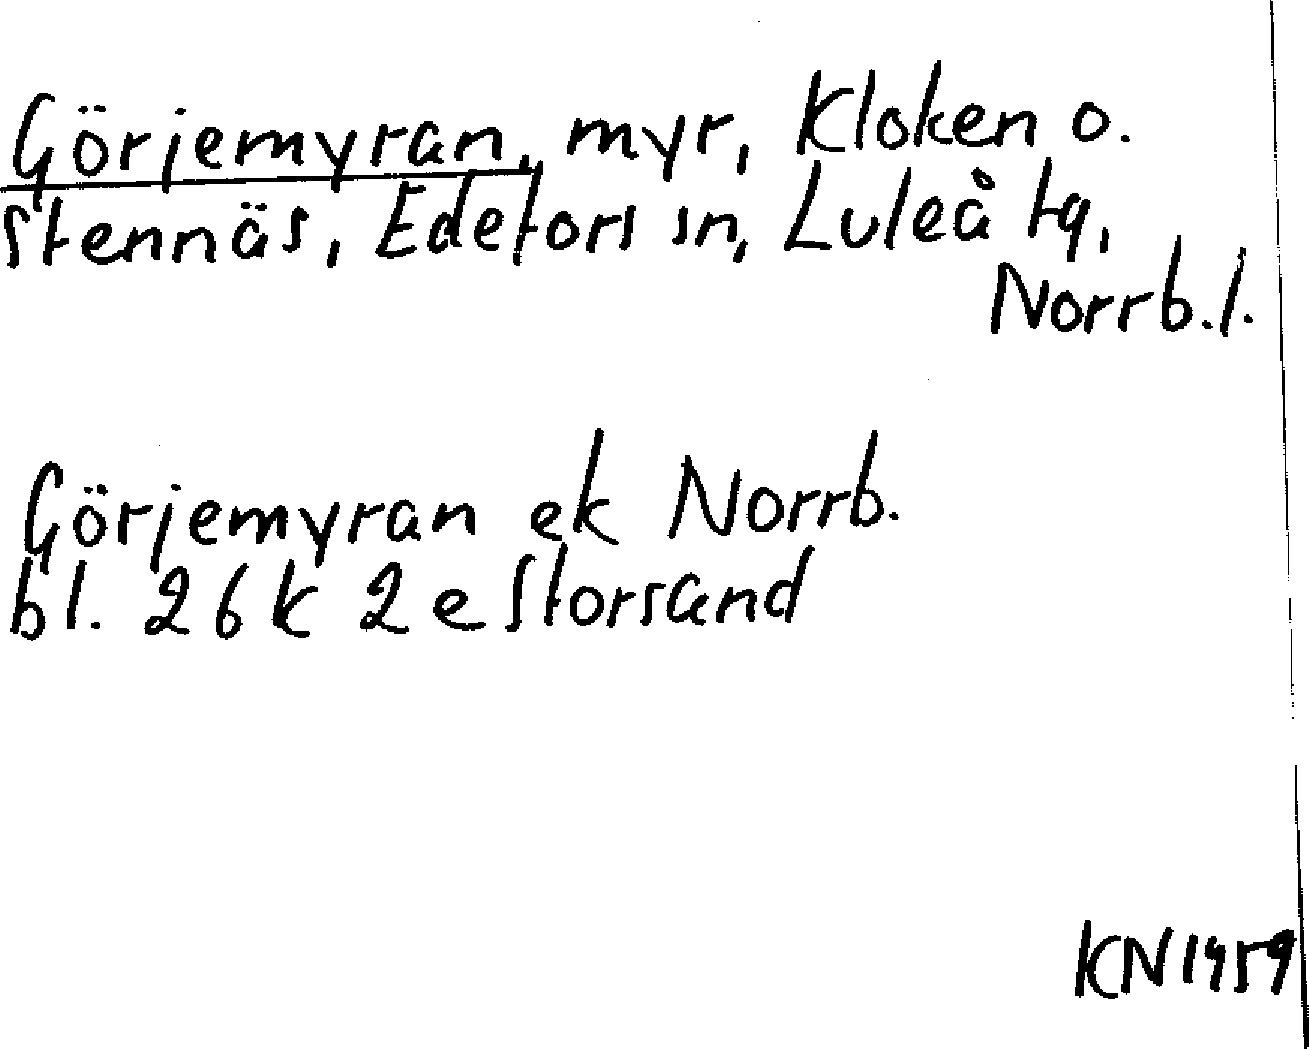 Görjemyran, myr, Kloken o.
Stennäs, Edefors sn, Luleå tg,
Norrb.l.
Görjemyran ek Norrb.
bl. 26k 2e Storsand
KN 1959